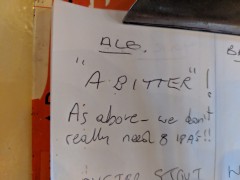 ALB.
"A BITTER"!
A's above - we don't
really need 8 IPAs!!
STOUT